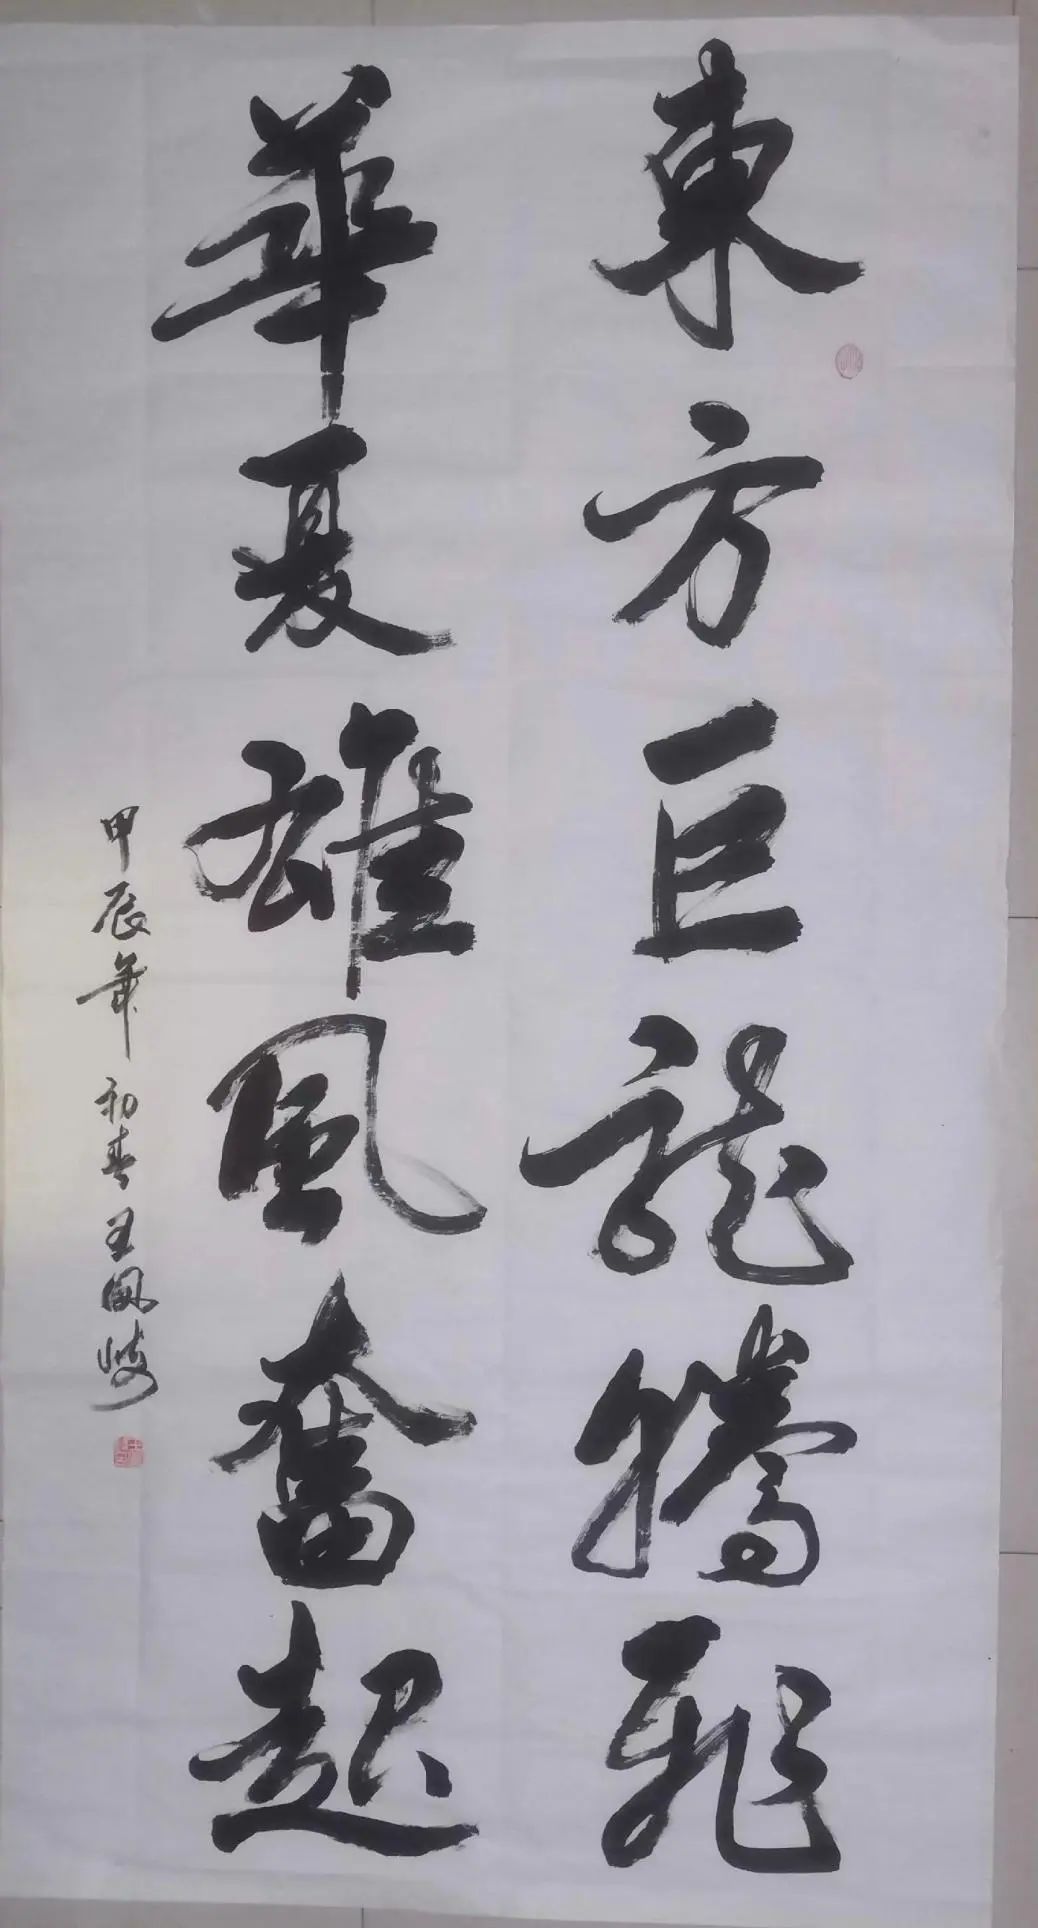 東方巨龍騰飛
華夏雄風奮起
甲辰年初春王凤岐